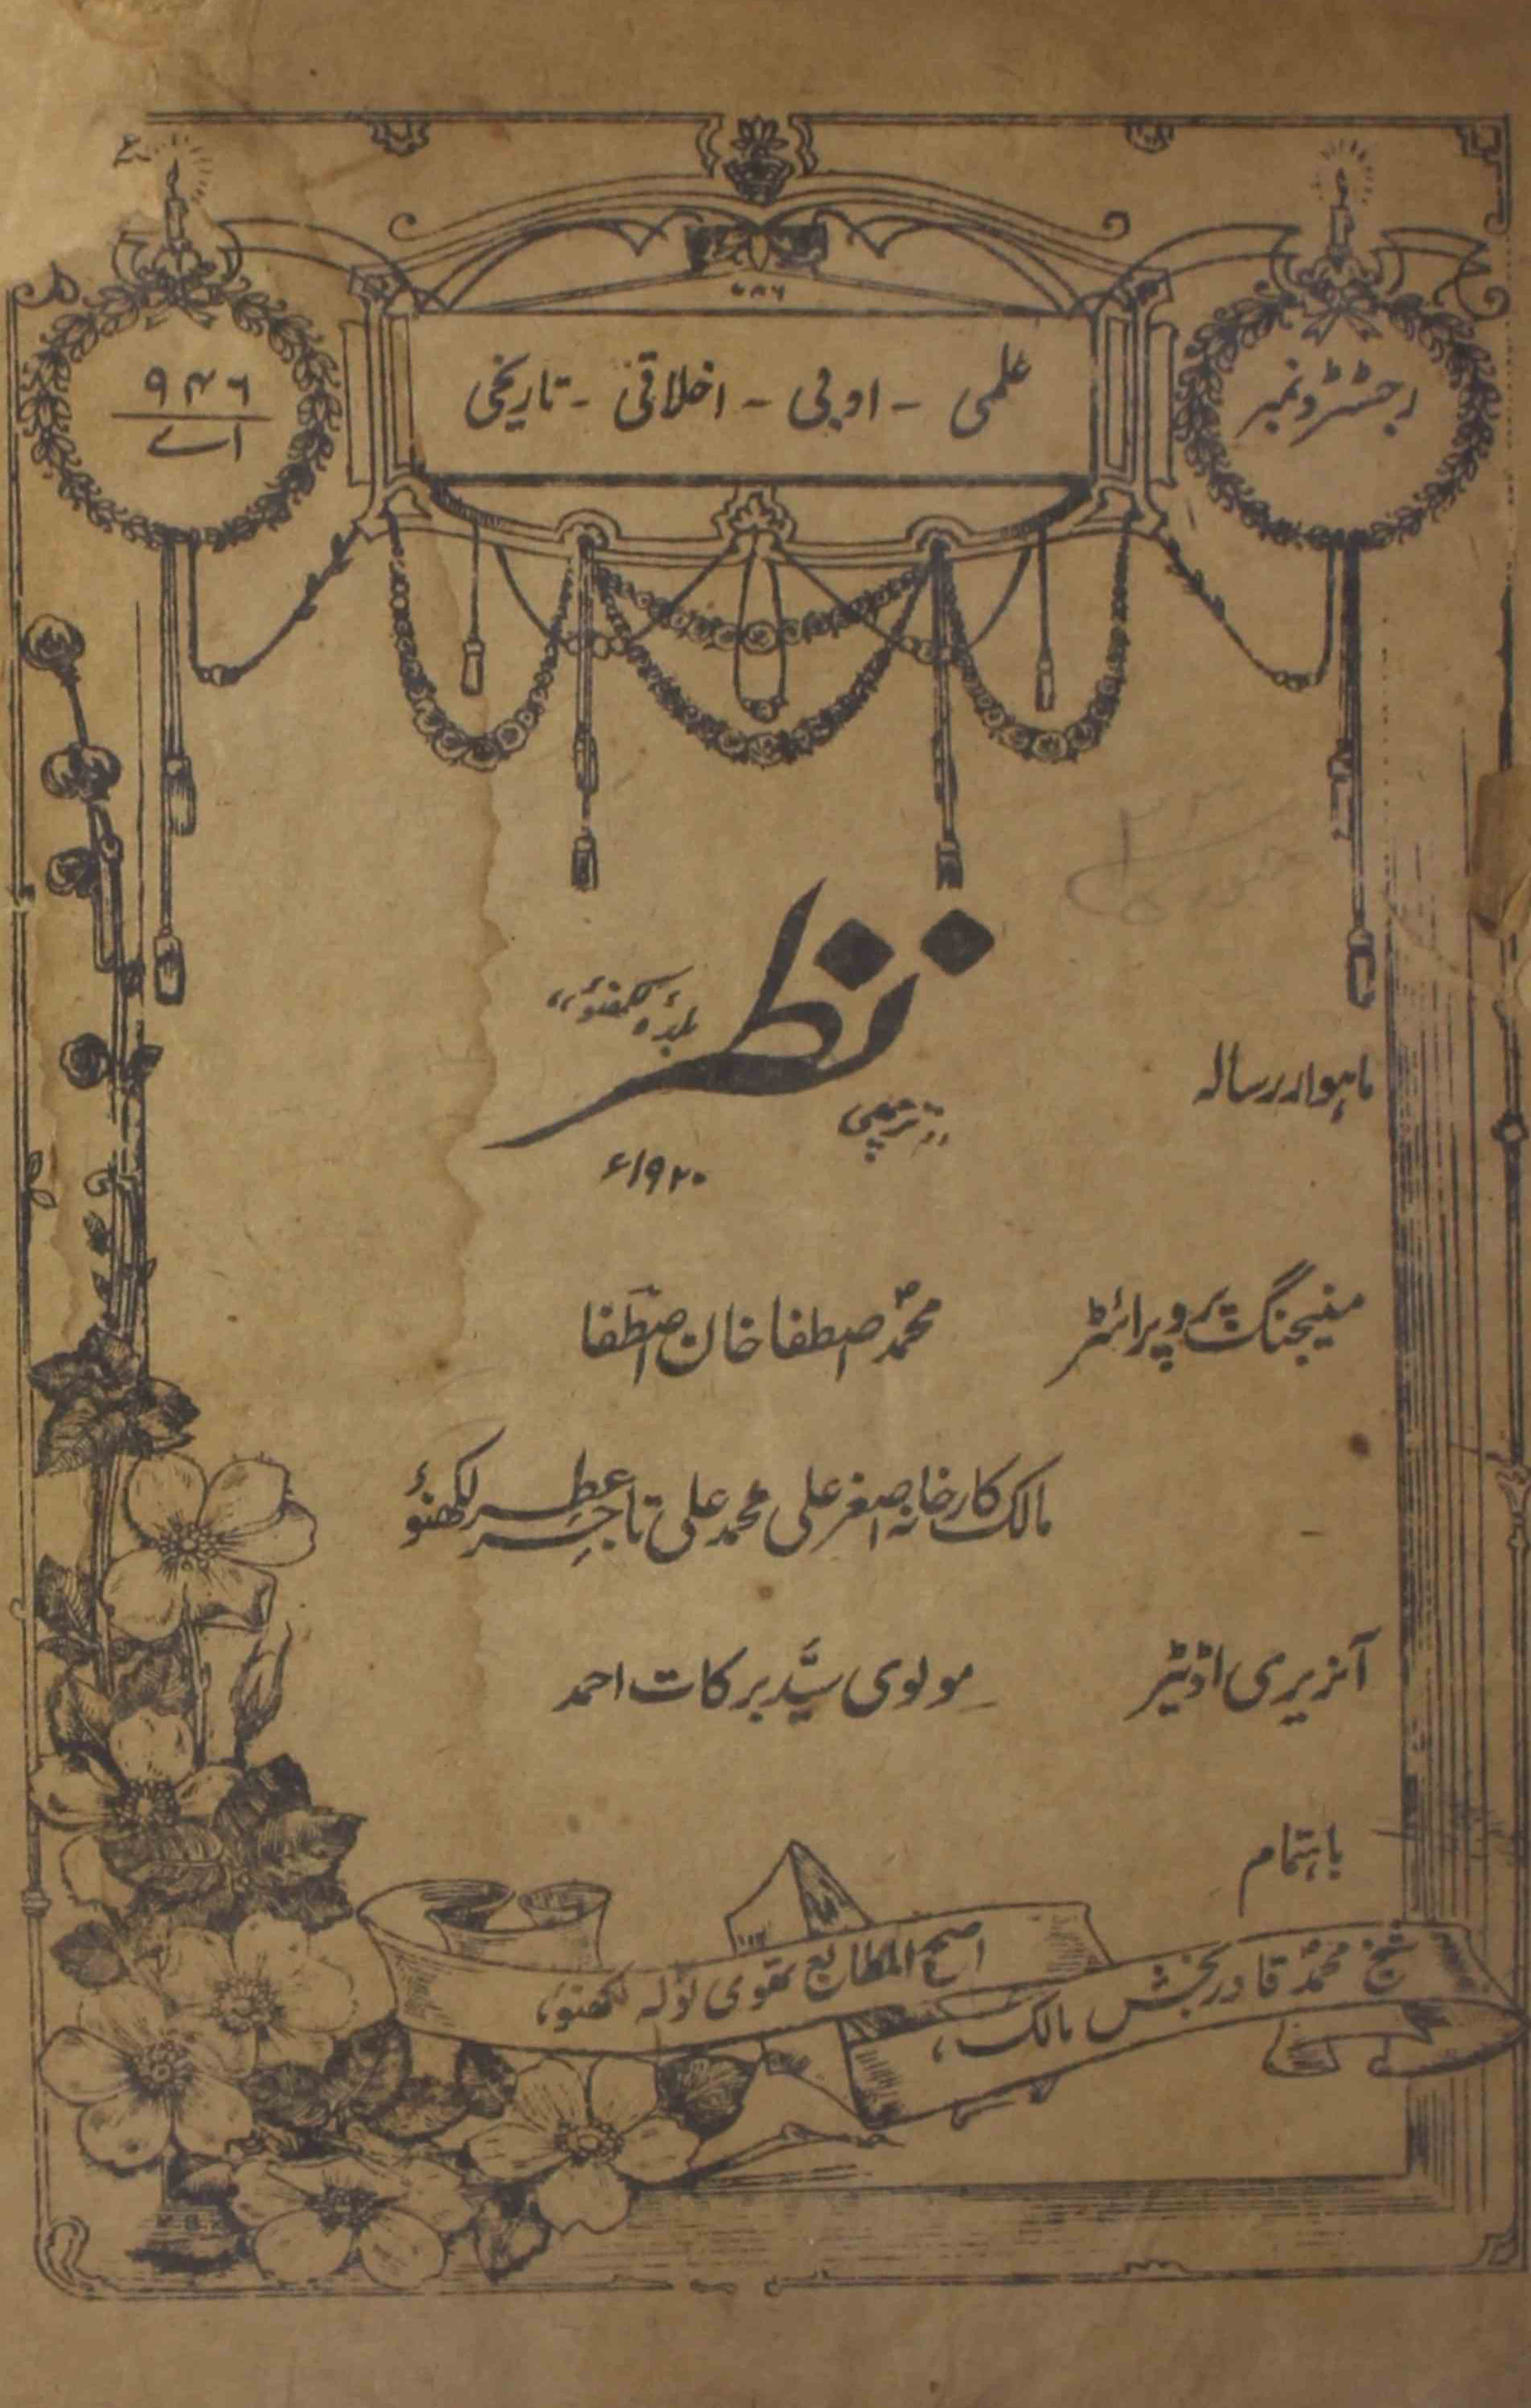 ۷۸۶
رجسٹرڈ نمبر
علمی - ادبی - اخلاقی - تاریخی
۹۴۶
اے
ماہوار رسالہ
نظر
بلدۂ لکھنؤ،،
۱۹۲۰ء
منیجنگ پروپرائٹر
محمدؐ اصطفا خان اصطفا
مالک کارخانہ اصغر علی محمد علی تاجر عطر لکھنؤ
آنریری اڈیٹر
مولوی سیّد برکات احمد
باہتمام
شیخ محمدؐ قادر بخش مالک،
اصح المطابع نقوی ٹولہ لکھنؤ،